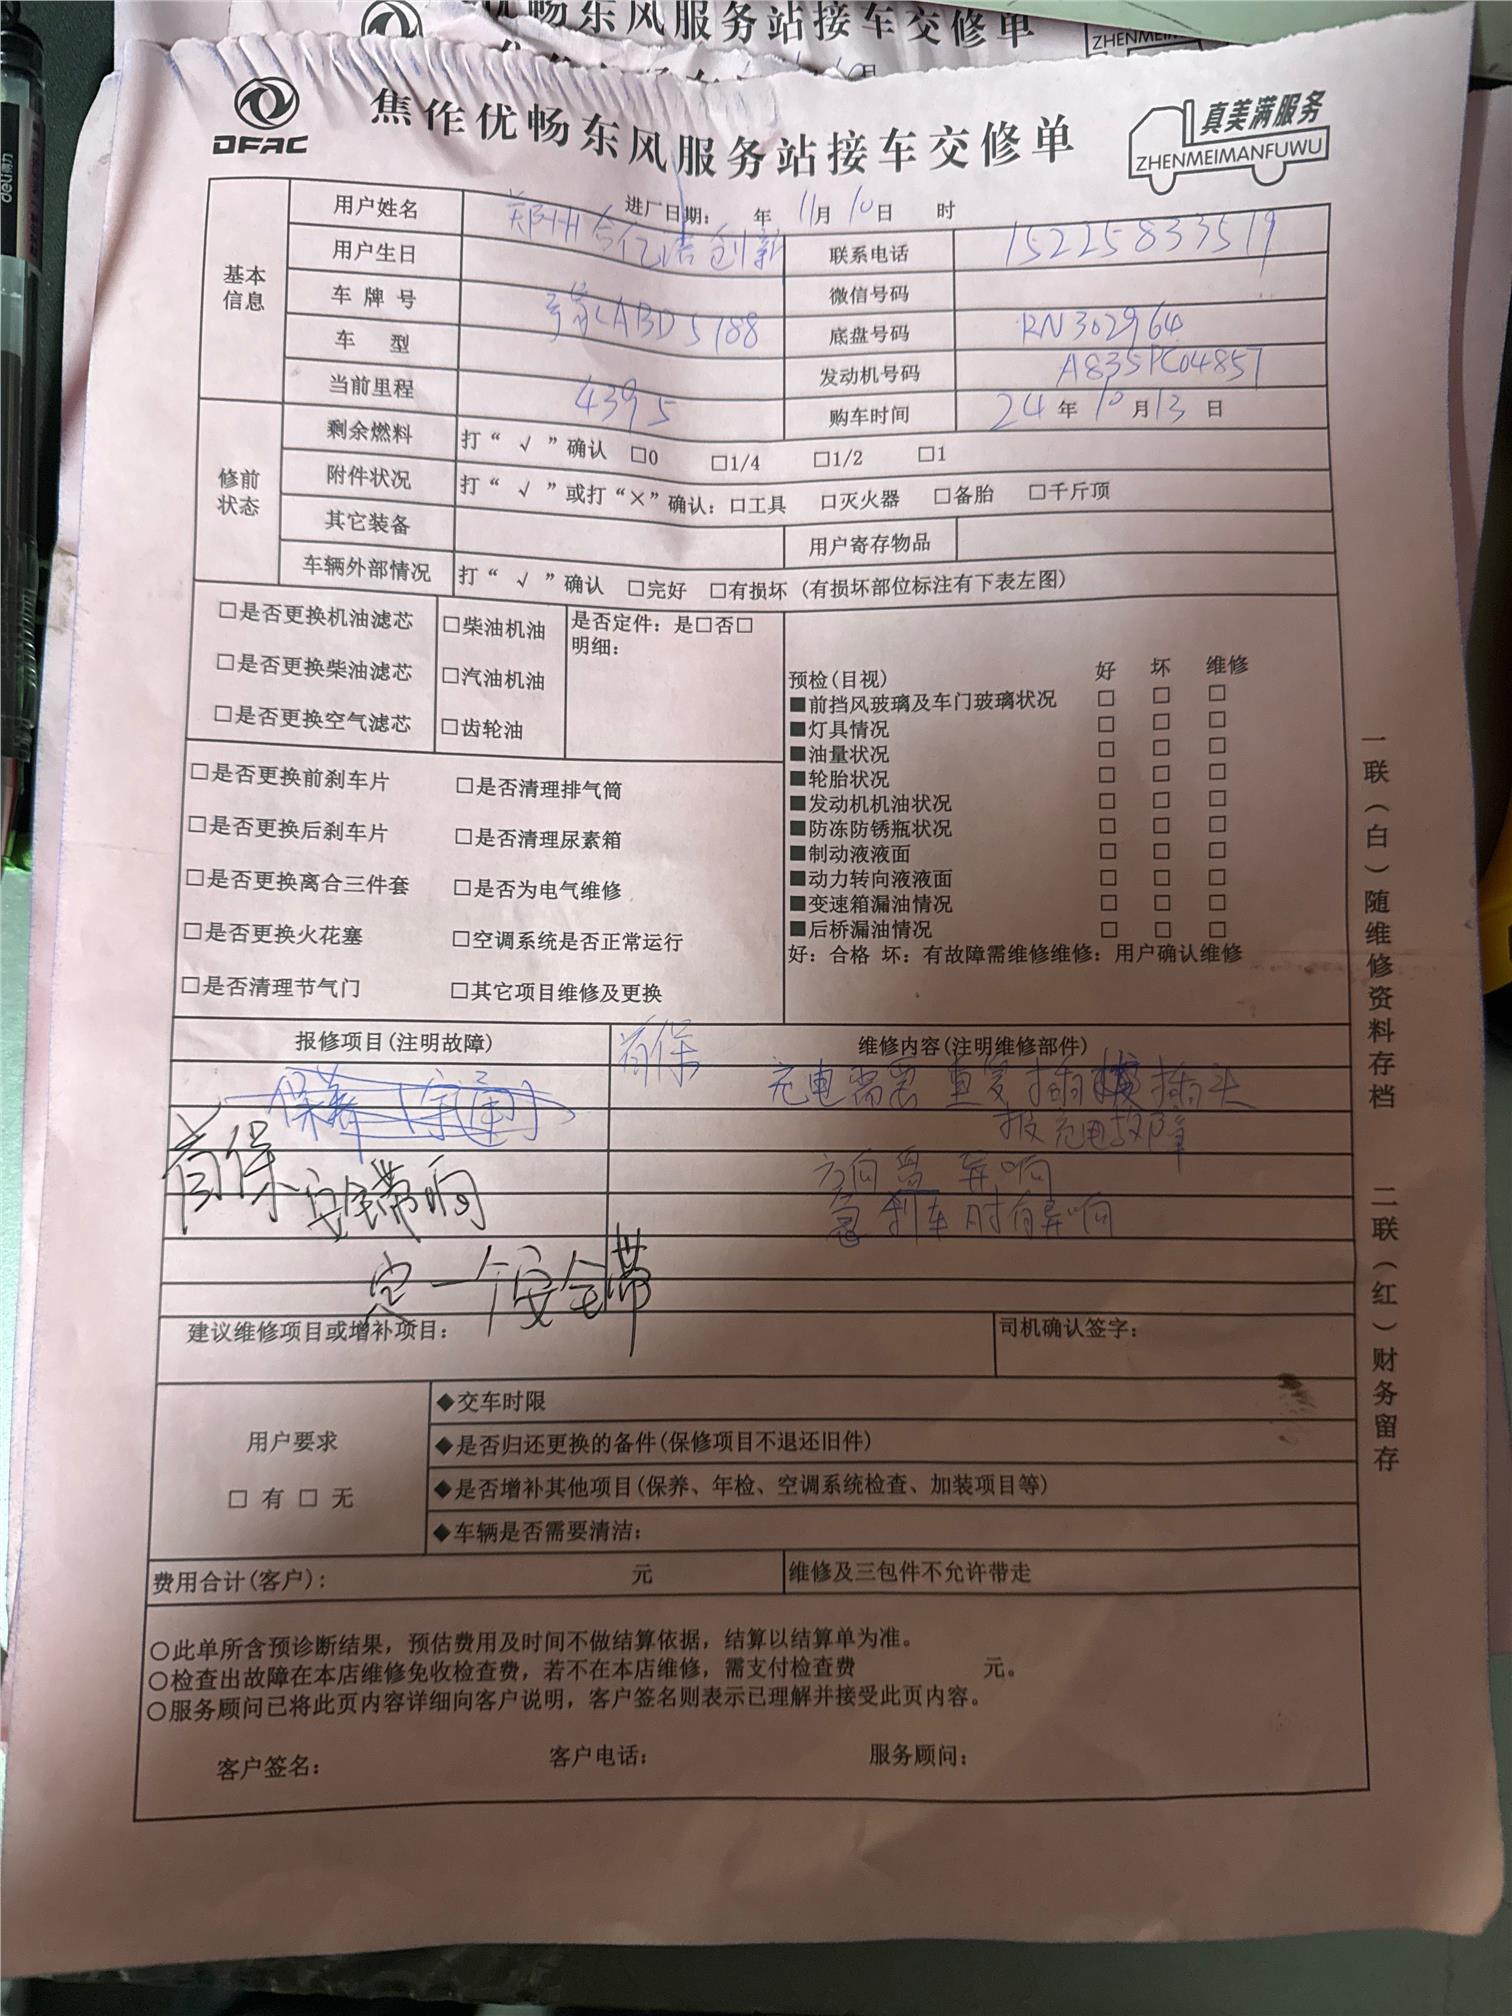 优畅东风服务站接车交修单
ZHENMEI
DFAC
焦作优畅东风服务站接车交修单
真美满服务
ZHENMEIMANFUWU
deli得力
进厂日期: 年 11月 10日 时
基本信息
用户姓名 郑州合亿诺创新
用户生日 联系电话 15225833519
车牌号 豫ABD5188 微信号码
车 型 底盘号码 RN302964
当前里程 4395 发动机号码 A835PC04857
购车时间 24年10月13日
修前状态
剩余燃料 打“√”确认 □0 □1/4 □1/2 □1
附件状况 打“√”或打“×”确认：□工具 □灭火器 □备胎 □千斤顶
其它装备 用户寄存物品
车辆外部情况 打“√”确认 □完好 □有损坏 (有损坏部位标注有下表左图)
□是否更换机油滤芯 □柴油机油 是否定件：是□否□
明细：
□是否更换柴油滤芯 □汽油机油
□是否更换空气滤芯 □齿轮油
□是否更换前刹车片 □是否清理排气筒
□是否更换后刹车片 □是否清理尿素箱
□是否更换离合三件套 □是否为电气维修
□是否更换火花塞 □空调系统是否正常运行
□是否清理节气门 □其它项目维修及更换
预检(目视) 好 坏 维修
■前挡风玻璃及车门玻璃状况 □ □ □
■灯具情况 □ □ □
■油量状况 □ □ □
■轮胎状况 □ □ □
■发动机机油状况 □ □ □
■防冻防锈瓶状况 □ □ □
■制动液液面 □ □ □
■动力转向液液面 □ □ □
■变速箱漏油情况 □ □ □
■后桥漏油情况 □ □ □
好：合格 坏：有故障需维修维修：用户确认维修
报修项目(注明故障) 首保 维修内容(注明维修部件)
保养 充电需要重复插拔插头
报充电故障
首保 安全带响 方向盘异响
急刹车时有异响
定一个安全带
建议维修项目或增补项目： 司机确认签字：
用户要求
□ 有 □ 无
◆交车时限
◆是否归还更换的备件(保修项目不退还旧件)
◆是否增补其他项目(保养、年检、空调系统检查、加装项目等)
◆车辆是否需要清洁：
费用合计(客户)： 元 维修及三包件不允许带走
○此单所含预诊断结果，预估费用及时间不做结算依据，结算以结算单为准。
○检查出故障在本店维修免收检查费，若不在本店维修，需支付检查费 元。
○服务顾问已将此页内容详细向客户说明，客户签名则表示已理解并接受此页内容。
客户签名： 客户电话： 服务顾问：
一联(白)随维修资料存档 二联(红)财务留存